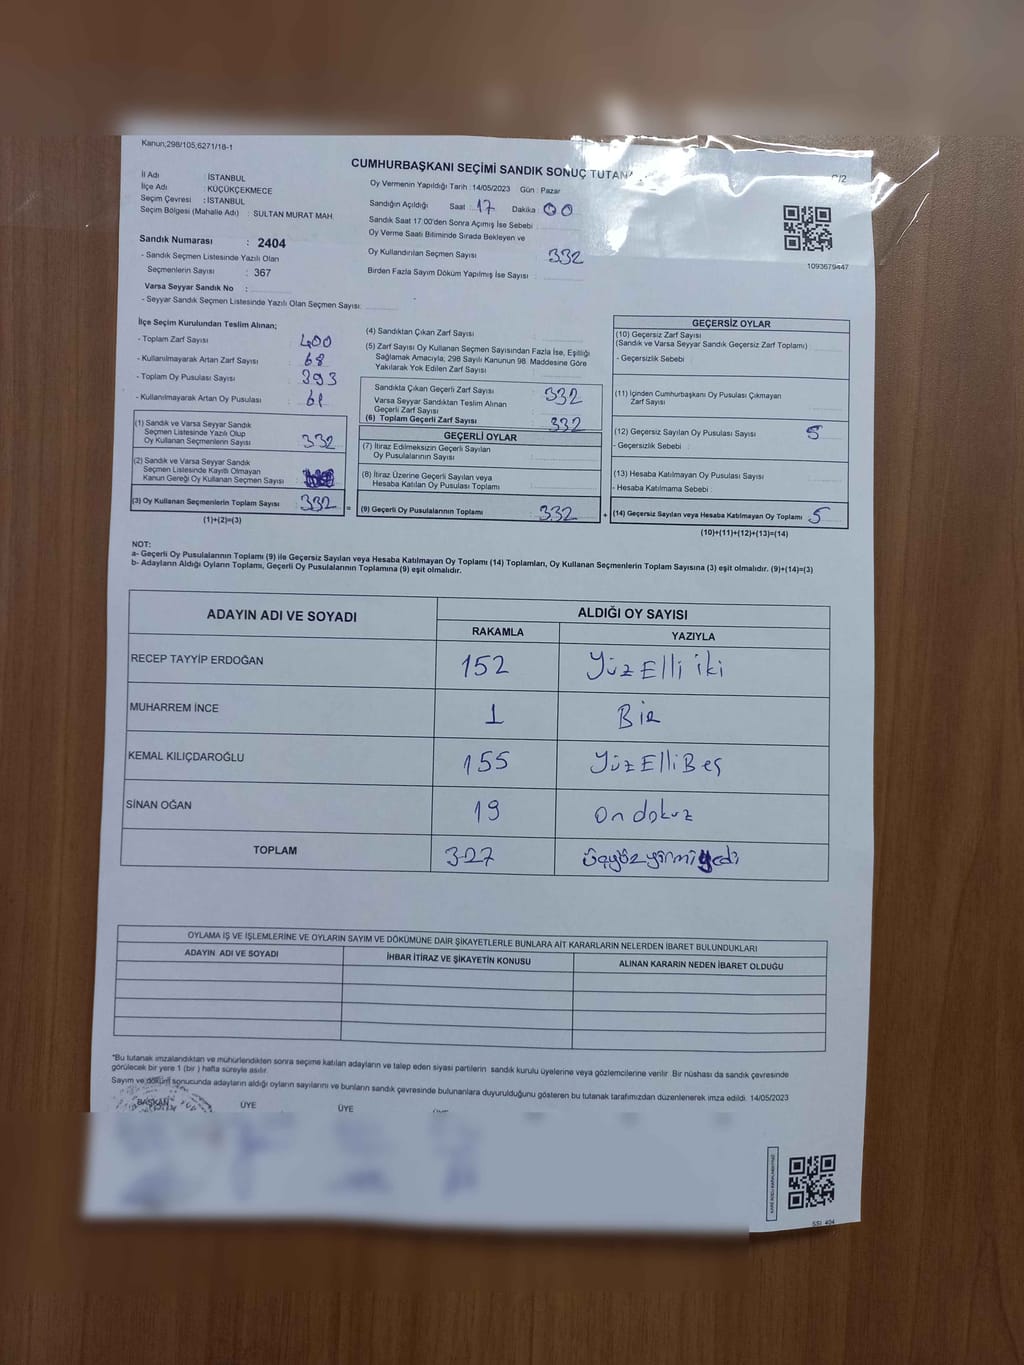 Kanun,298/105,6271/18-1
CUMHURBAŞKANI SEÇİMİ SANDIK SONUÇ
İl Adı : İSTANBUL
İlçe Adı : KÜÇÜKÇEKMECE
Seçim Çevresi : İSTANBUL
Seçim Bölgesi (Mahalle Adı) : SULTAN MURAT MAH.
Sandık Numarası : 2404
- Sandık Seçmen Listesinde Yazılı Olan
Seçmenlerin Sayısı : 367
Varsa Seyyar Sandık No :
- Seyyar Sandık Seçmen Listesinde Yazılı Olan Seçmen Sayısı:
Oy Vermenin Yapıldığı Tarih :14/05/2023 Gün : Pazar
Sandığın Açıldığı Saat : 17 Dakika : 00
Sandık Saat 17:00'den Sonra Açımış İse Sebebi :
Oy Verme Saati Bitiminde Sırada Bekleyen ve
Oy Kullandırılan Seçmen Sayısı : 332
Birden Fazla Sayım Döküm Yapılmış İse Sayısı :
1093679447
İlçe Seçim Kurulundan Teslim Alınan;
- Toplam Zarf Sayısı : 400
- Kullanılmayarak Artan Zarf Sayısı : 68
- Toplam Oy Pusulası Sayısı : 393
- Kullanılmayarak Artan Oy Pusulası : 61
(1) Sandık ve Varsa Seyyar Sandık
Seçmen Listesinde Yazılı Olup
Oy Kullanan Seçmenlerin Sayısı : 332
(2) Sandık ve Varsa Seyyar Sandık
Seçmen Listesinde Kayıtlı Olmayan
Kanun Gereği Oy Kullanan Seçmen Sayısı :
(3) Oy Kullanan Seçmenlerin Toplam Sayısı : 332
(1)+(2)=(3)
(4) Sandıktan Çıkan Zarf Sayısı :
(5) Zarf Sayısı Oy Kullanan Seçmen Sayısından Fazla İse, Eşitliği
Sağlamak Amacıyla; 298 Sayılı Kanunun 98. Maddesine Göre
Yakılarak Yok Edilen Zarf Sayısı :
Sandıkta Çıkan Geçerli Zarf Sayısı : 332
Varsa Seyyar Sandıktan Teslim Alınan
Geçerli Zarf Sayısı :
(6) Toplam Geçerli Zarf Sayısı : 332
GEÇERLİ OYLAR
(7) İtiraz Edilmeksizin Geçerli Sayılan
Oy Pusulalarının Sayısı :
(8) İtiraz Üzerine Geçerli Sayılan veya
Hesaba Katılan Oy Pusulası Toplamı :
= (9) Geçerli Oy Pusulalarının Toplamı : 332 +
GEÇERSİZ OYLAR
(10) Geçersiz Zarf Sayısı
(Sandık ve Varsa Seyyar Sandık Geçersiz Zarf Toplamı) :
- Geçersizlik Sebebi :
(11) İçinden Cumhurbaşkanı Oy Pusulası Çıkmayan
Zarf Sayısı :
(12) Geçersiz Sayılan Oy Pusulası Sayısı : 5
- Geçersizlik Sebebi :
(13) Hesaba Katılmayan Oy Pusulası Sayısı :
- Hesaba Katılmama Sebebi :
(14) Geçersiz Sayılan veya Hesaba Katılmayan Oy Toplamı : 5
(10)+(11)+(12)+(13)=(14)
NOT:
a- Geçerli Oy Pusulalarının Toplamı (9) ile Geçersiz Sayılan veya Hesaba Katılmayan Oy Toplamı (14) Toplamları, Oy Kullanan Seçmenlerin Toplam Sayısına (3) eşit olmalıdır. (9)+(14)=(3)
b- Adayların Aldığı Oyların Toplamı, Geçerli Oy Pusulalarının Toplamına (9) eşit olmalıdır.
ADAYIN ADI VE SOYADI ALDIĞI OY SAYISI
RAKAMLA YAZIYLA
RECEP TAYYİP ERDOĞAN 152 Yüz Elli iki
MUHARREM İNCE 1 Bir
KEMAL KILIÇDAROĞLU 155 Yüz Elli Beş
SİNAN OĞAN 19 On dokuz
TOPLAM 327 üçyüzyirmiyedi
OYLAMA İŞ VE İŞLEMLERİNE VE OYLARIN SAYIM VE DÖKÜMÜNE DAİR ŞİKAYETLERLE BUNLARA AİT KARARLARIN NELERDEN İBARET BULUNDUKLARI
ADAYIN ADI VE SOYADI İHBAR İTİRAZ VE ŞİKAYETİN KONUSU ALINAN KARARIN NEDEN İBARET OLDUĞU
*Bu tutanak imzalandıktan ve mühürlendikten sonra seçime katılan adayların ve talep eden siyasi partilerin sandık kurulu üyelerine veya gözlemcilerine verilir. Bir nüshası da sandık çevresinde
görülecek bir yere 1 (bir ) hafta süreyle asılır.
Sayım ve döküm sonucunda adayların aldığı oyların sayılarını ve bunların sandık çevresinde bulunanlara duyurulduğunu gösteren bu tutanak tarafımızdan düzenlenerek imza edildi. 14/05/2023
BAŞKAN ÜYE ÜYE